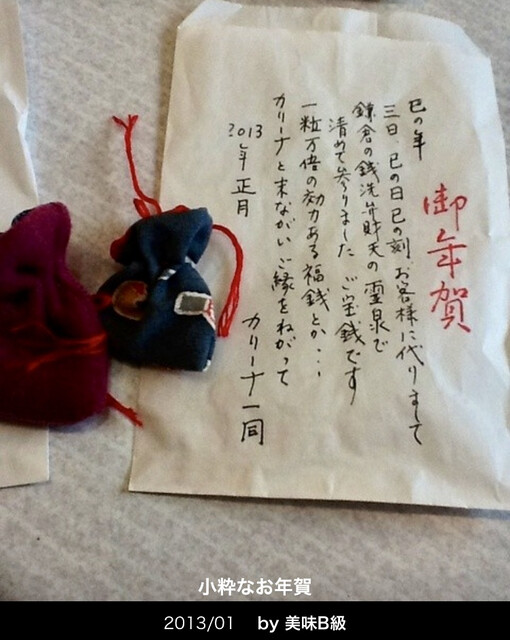 御年賀
巳の年
三日、巳の日巳の刻、お客様に代りまして
鎌倉の銭洗弁財天の霊泉で
清めて参りました ご宝銭です
一粒万倍の効力ある福銭とか・・・
カリーナと末ながいご縁をねがって
2013年 正月
カリーナ一同
小粋なお年賀
2013/01 by 美味B級